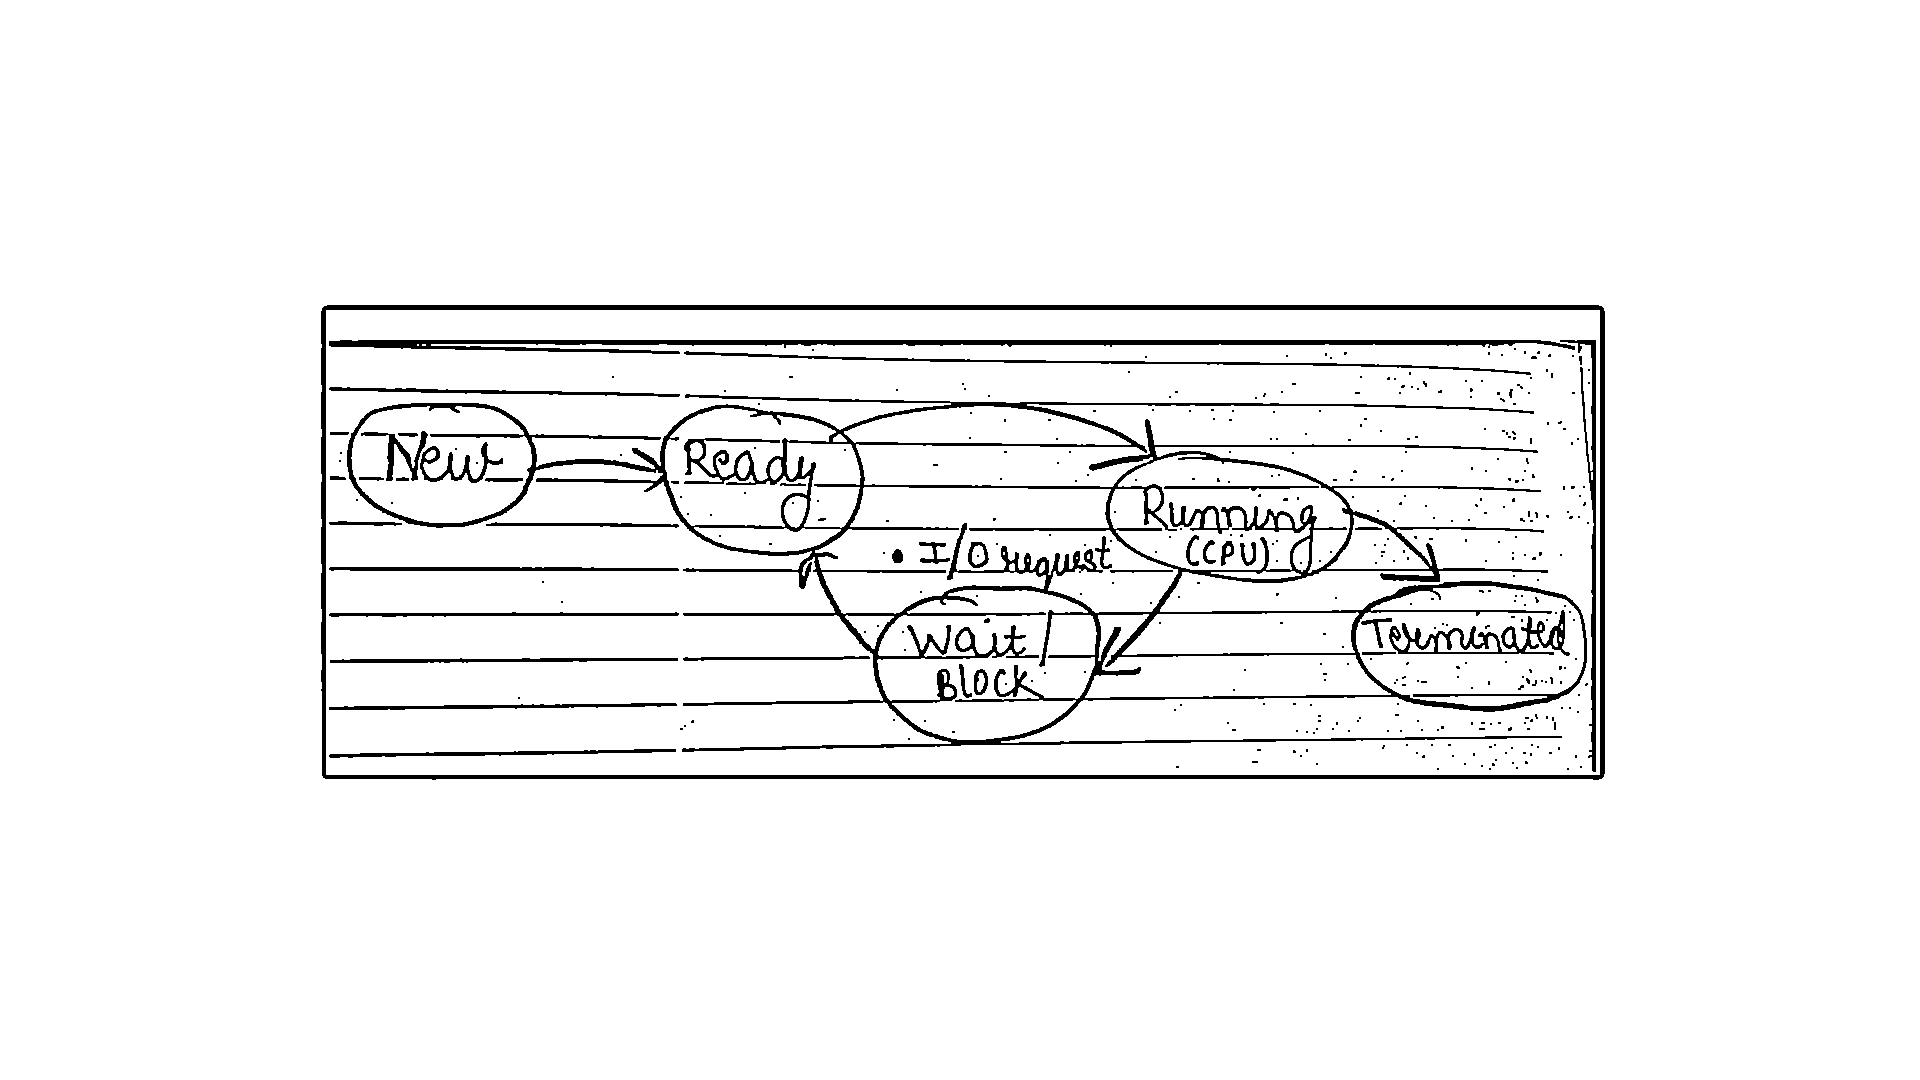 New
Ready
Running
(CPU)
• I/O request
Wait /
Block
Terminated